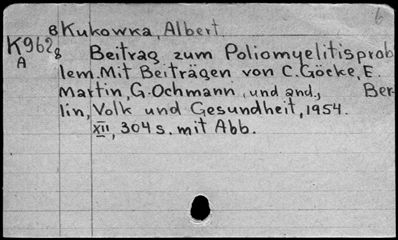 6
8 Kukowka, Albert
K962g Beitrag zum Poliomyelitisprob
A lem. Mit Beiträgen von C. Göcke, E.
Martin, G. Ochmann, und and., Ber-
lin, Volk und Gesundheit, 1954.
XII, 304 s. mit Abb.